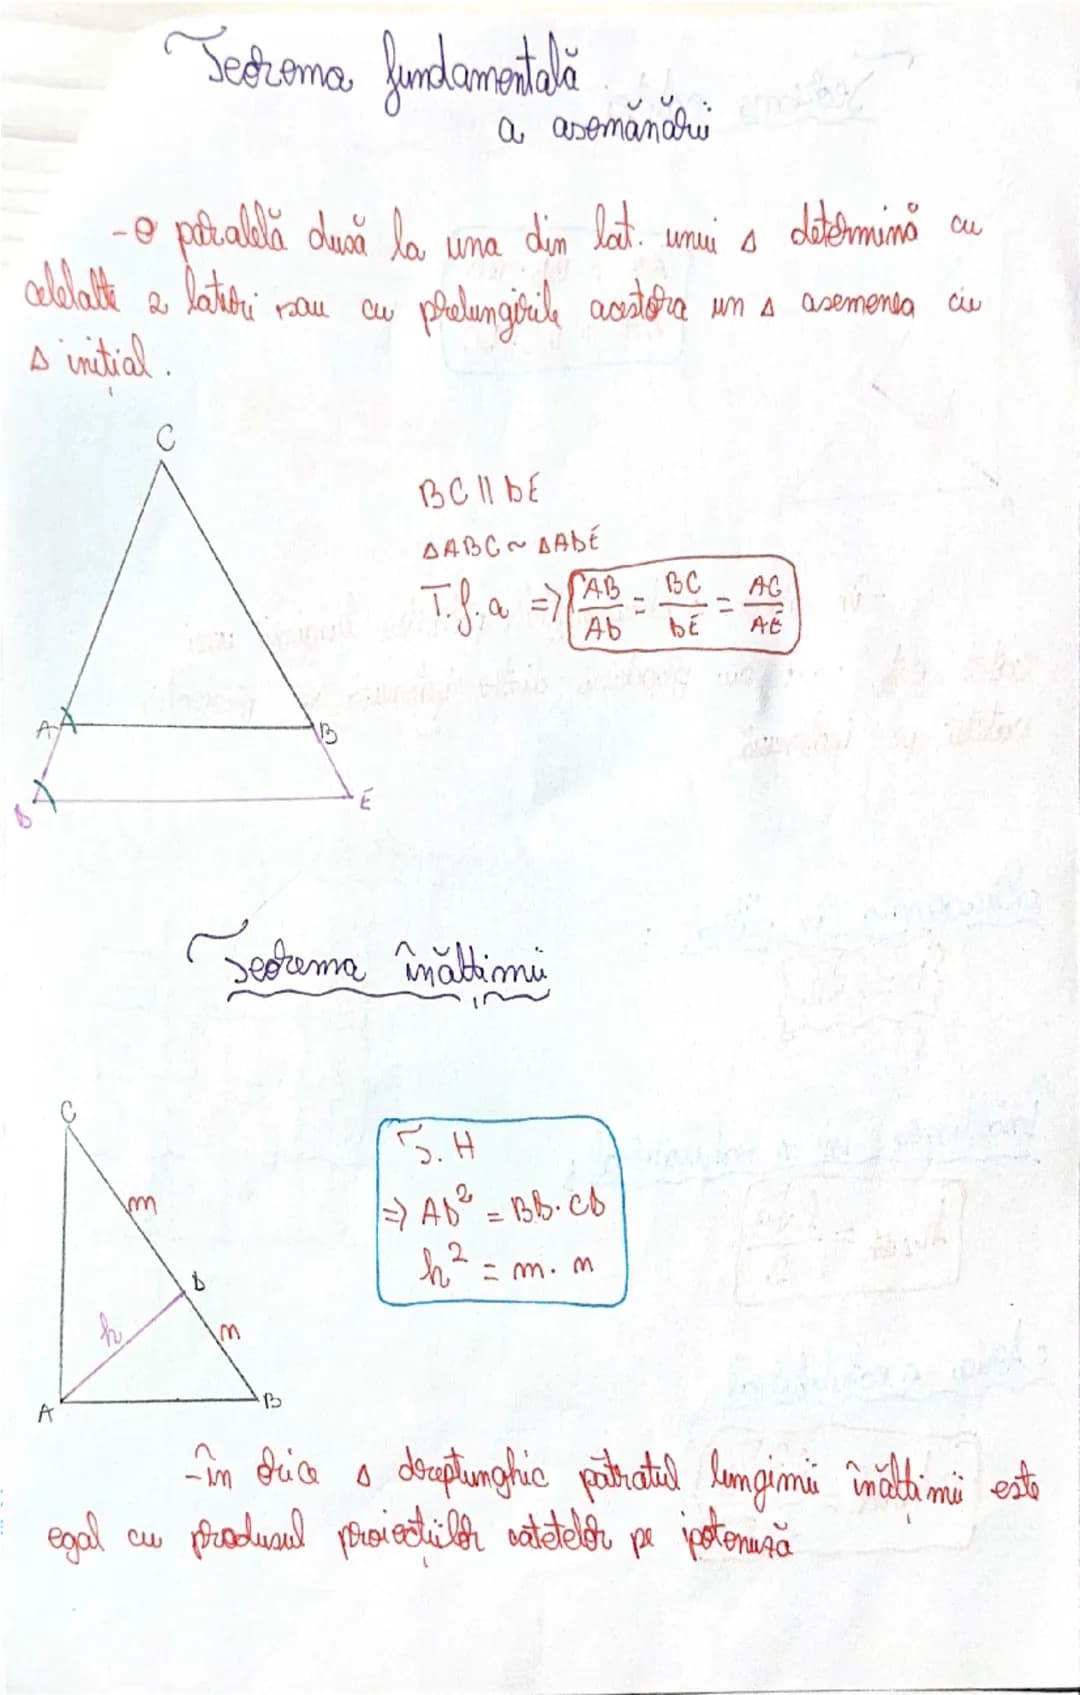 Teorema fundamentală
a asemănării
- O paralelă dusă la una din lat. unui Δ determină cu
celelalte 2 laturi sau cu prelungirile acestora un Δ asemenea cu
Δ inițial.
C
BC || DE
ΔABC ~ ΔADE
T.f.a => AB/AD = BC/DE = AC/AE
A
B
D
E
Teorema înălțimii
C
T. H
m
=> AD² = BD · CD
h² = m · n
D
h
n
A
B
- în orice Δ dreptunghic pătratul lungimii înălțimii este
egal cu produsul proiecțiilor catetelor pe ipotenuză